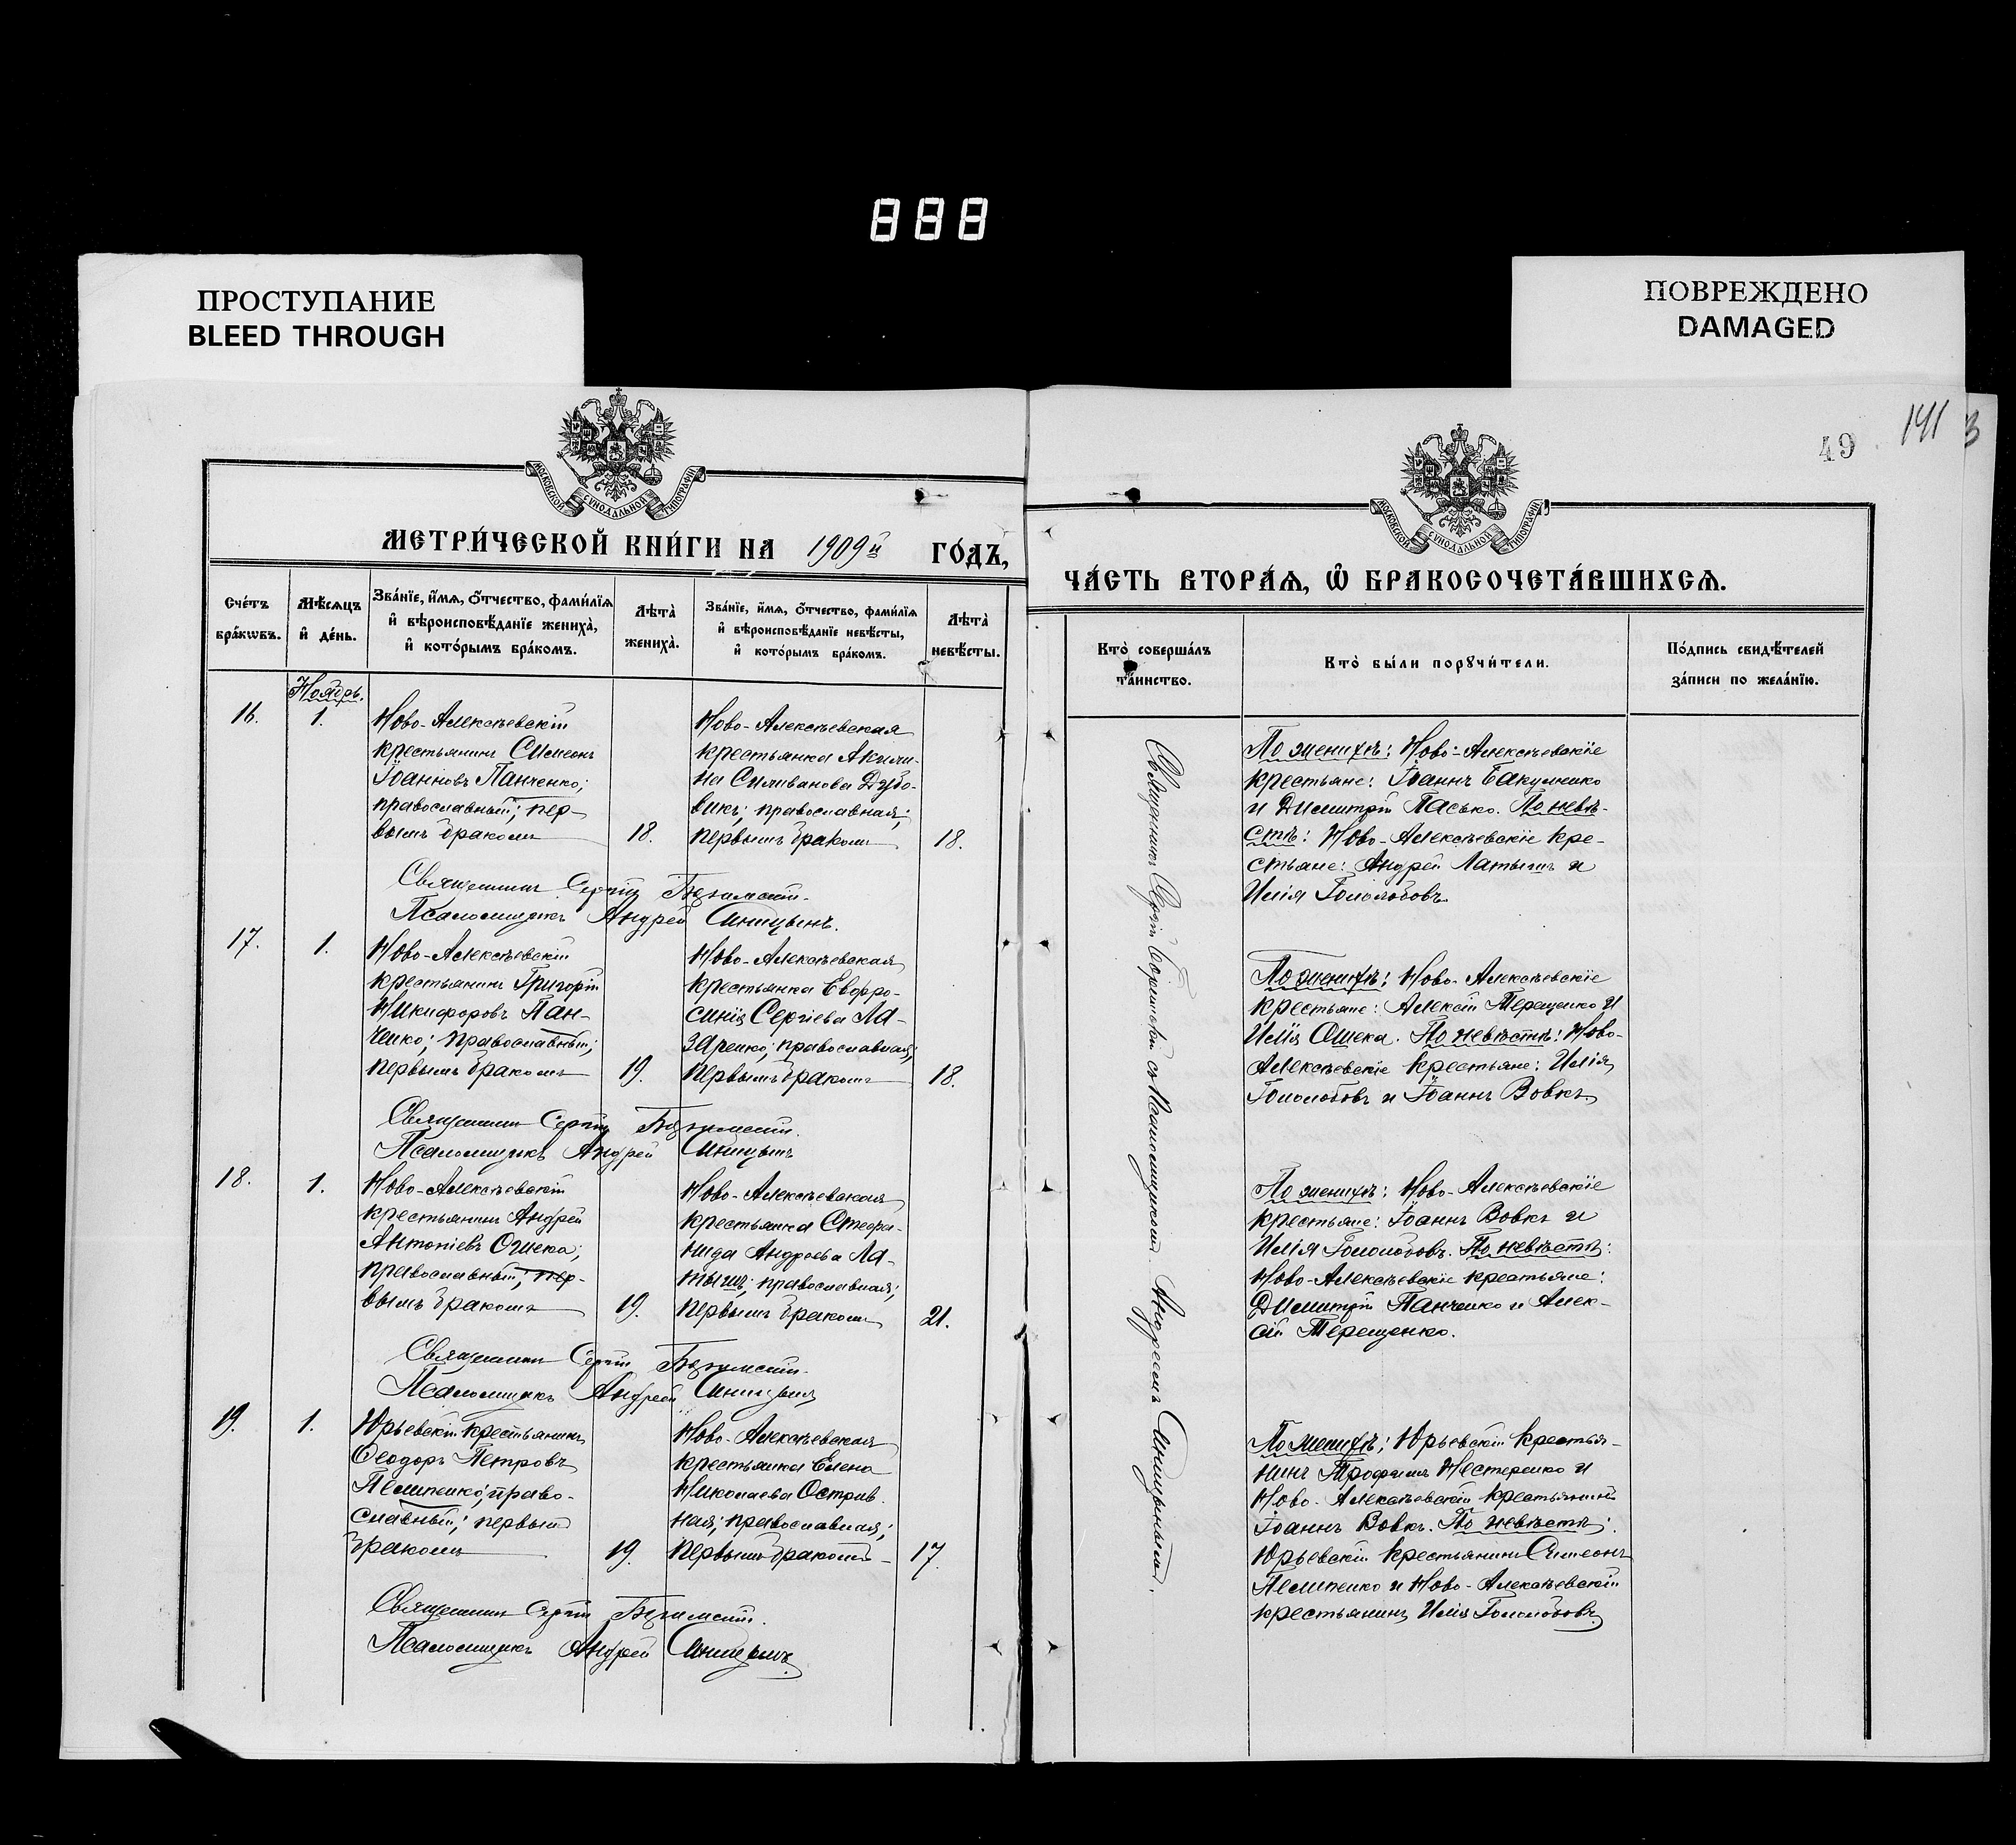 888
ПРОСТУПАНИЕ
BLEED THROUGH
ПОВРЕЖДЕНО
DAMAGED
49
141
3
МОСКОВСКОЙ СУНОДАЛЬНОЙ ТИПОГРАФІИ
МЕТРИ́ЧЕСКОЙ КНИ́ГИ НА 1909й ГО́ДЪ,
Сче́тъ бра́кѡвъ.
Мѣ́сяцъ и де́нь.
Зва́нїе, и́мѧ, ѻ́тчество, фами́лїѧ
и вѣроисповѣ́данїе жениха̀,
и кото́рымъ бра́комъ.
Лѣта̀ жениха̀.
Зва́нїе, и́мѧ, ѻ́тчество, фами́лїѧ
и вѣроисповѣ́данїе невѣ́сты,
и кото́рымъ бра́комъ.
Лѣта̀ невѣ́сты.
Ноябрь.
16.
1.
Ново-Алексѣевскій
крестьянинъ Симеонъ
Іоанновъ Панченко;
православный; пер-
вымъ бракомъ
18.
Ново-Алексѣевская
крестьянка Акили-
на Силиванова Дубо-
викъ; православная;
первымъ бракомъ
18.
Священникъ Сергій
Псаломщикъ Андрей Синицынъ.
17.
1.
Ново-Алексѣевскій
крестьянинъ Григорій
Никифоровъ Пан-
ченко; православный;
первымъ бракомъ
19.
Ново-Алексѣевская
крестьянка Евфро-
синія Сергіева Ла-
заренко; православная;
первымъ бракомъ
18.
Священникъ Сергій
Псаломщикъ Андрей Синицынъ
18.
1.
Ново-Алексѣевскій
крестьянинъ Андрей
Антоніевъ Ошека;
православный; пер-
вымъ бракомъ
19.
Ново-Алексѣевская
крестьянка Стефа-
нида Андреева Ла-
тышъ; православная;
первымъ бракомъ
21.
Священникъ Сергій
Псаломщикъ Андрей Синицынъ
19.
1.
Юрьевскій крестьянинъ
Ѳеодоръ Петровъ
Пелипенко; право-
славный; первымъ
бракомъ
19.
Ново-Алексѣевская
крестьянка Елена
Николаева Острив-
ная; православная;
первымъ бракомъ
17.
Священникъ Сергій
Псаломщикъ Андрей Синицынъ.
МОСКОВСКОЙ СУНОДАЛЬНОЙ ТИПОГРАФІИ
ЧА́СТЬ ВТОРА́Ѧ, Ѡ БРАКОСОЧЕТА́ВШИХСѦ.
Кто̀ соверша́лъ
та́инство.
Кто̀ бы́ли порꙋчи́тели.
По́дпись свидѣ́телей
за́писи по жела́нїю.
Священникъ Сергій съ Псаломщикомъ Андреемъ Синицынымъ.
По женихѣ: Ново-Алексѣевскіе
крестьяне: Іоаннъ Бакуменко
и Димитрій Пасько. По невѣ-
стѣ: Ново-Алексѣевскіе кре-
стьяне: Андрей Латышъ и
Илія Гололобовъ.
По женихѣ: Ново-Алексѣевскіе
крестьяне: Алексій Терещенко и
Илія Ошека. По невѣстѣ: Ново-
Алексѣевскіе крестьяне: Илія
Гололобовъ и Іоаннъ Вовкъ.
По женихѣ: Ново-Алексѣевскіе
крестьяне: Іоаннъ Вовкъ и
Илія Гололобовъ. По невѣстѣ:
Ново-Алексѣевскіе крестьяне:
Димитрій Панченко и Алек-
сій Терещенко.
По женихѣ: Юрьевскій крестья-
нинъ Трофимъ Нестеренко и
Ново-Алексѣевскій крестьянинъ
Іоаннъ Вовкъ. По невѣстѣ:
Юрьевскій крестьянинъ Симеонъ
Пелипенко и Ново-Алексѣевскій
крестьянинъ Илія Гололобовъ.